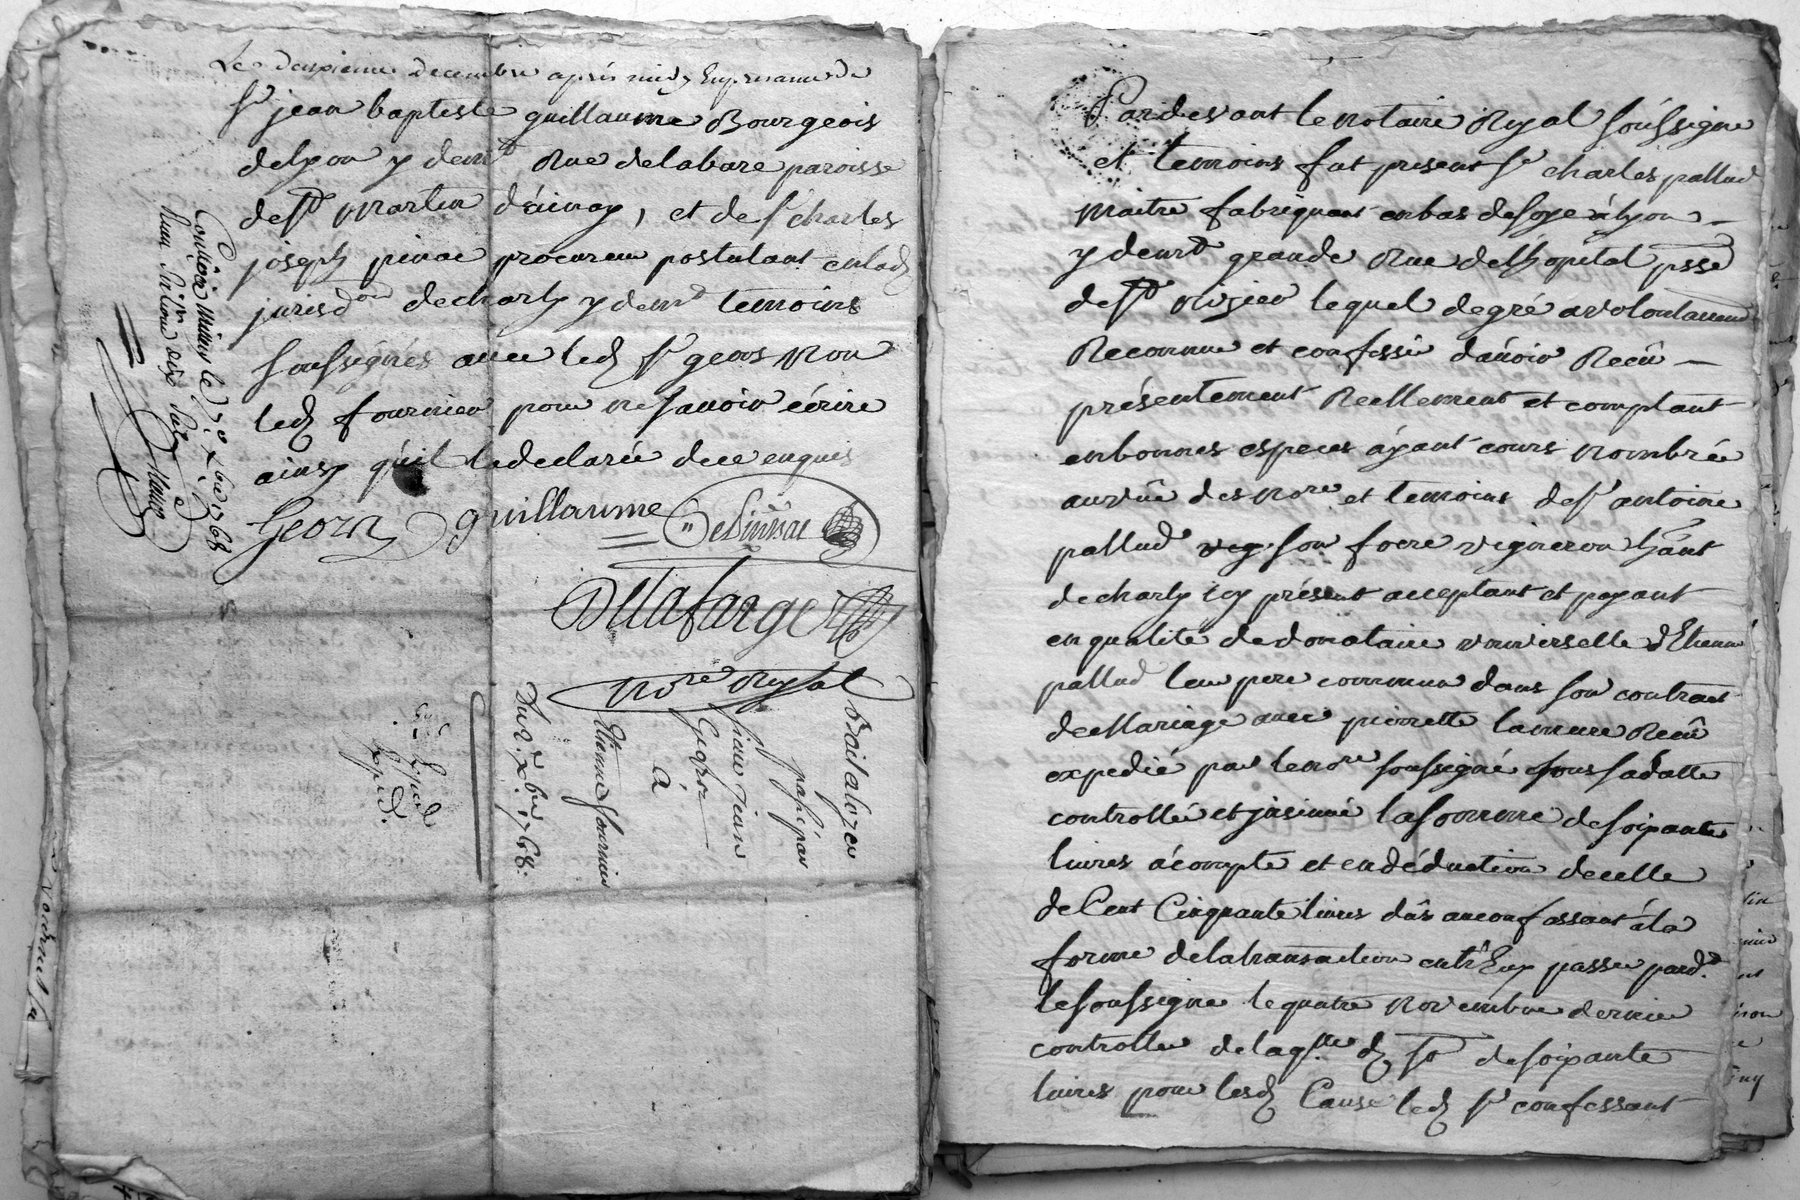 Le deuxieme decembre après midy En presence de
Sr jean baptiste guillaume Bourgeois
delyon y demt Rue delabare paroisse
de St Martin d'aiinay, et de Sr charles
joseph pinac procureur postulant enlad
jurisdon decharly y demt temoins
soussignés avec led Sr geors Non
led fournier pour ne savoir écrire
ainsy qu'il la declaré dece enquis
Geors guillaume DePinnac
Delafarge
Nore Royal
Controllé Millery le 7e xbre 1768
Bail aloyer
passé par
Sieur jean
Geors
à
Etienne fournier
Du 2e xbre 1768.
Exped.
Pardevant le Notaire Royal soussigné
et temoins fut present Sr charles pallud
Maitre fabriquant enbas desoye àlyon
y demt grande Rue del'hopital psse
de St Nizier lequel de gré a volontairemt
Reconnu et confessé d'avoir Recû
présentement Reellement et comptant
enbonnes especes ayant cours Nombrée
auvûe des Nore et temoins de Sr antoine
pallud son frere vigneron hant
de charly icy présent acceptant et payant
en qualité de donataire universelle d'Etienne
pallud leur pere commun dans son contrat
de Mariage avec pierrette lamure Recû
expedié par le nore soussigné sous sa datte
controllé et jnsinué la somme de soixante
livres àcompte et en déduction decelle
de Cent Cinquante livres dûs au confessant àla
forme delatransaction entr'Eux passée pard.t
le soussigné le quatre Novembre dernier
controllée delaqlle d so desoixante
livres pour lesd Cause led Sr confessant